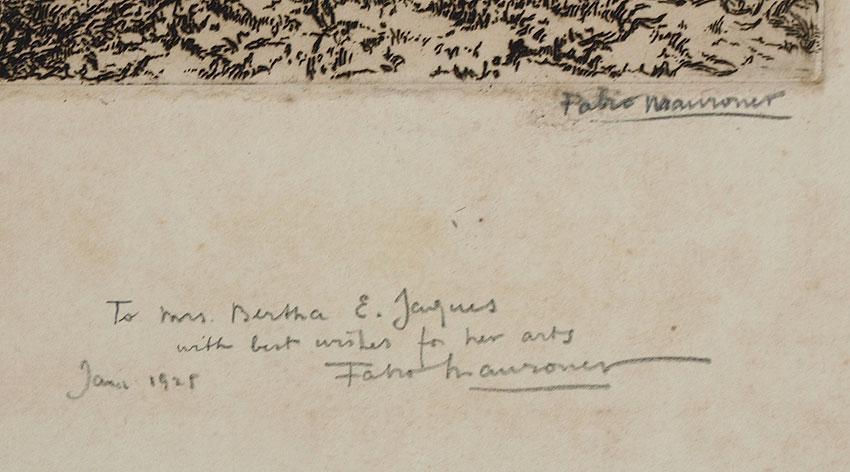 Fabio Mauroner
To Mrs. Bertha E. Jaques
with best wishes for her arts
Fabio Mauroner
1925